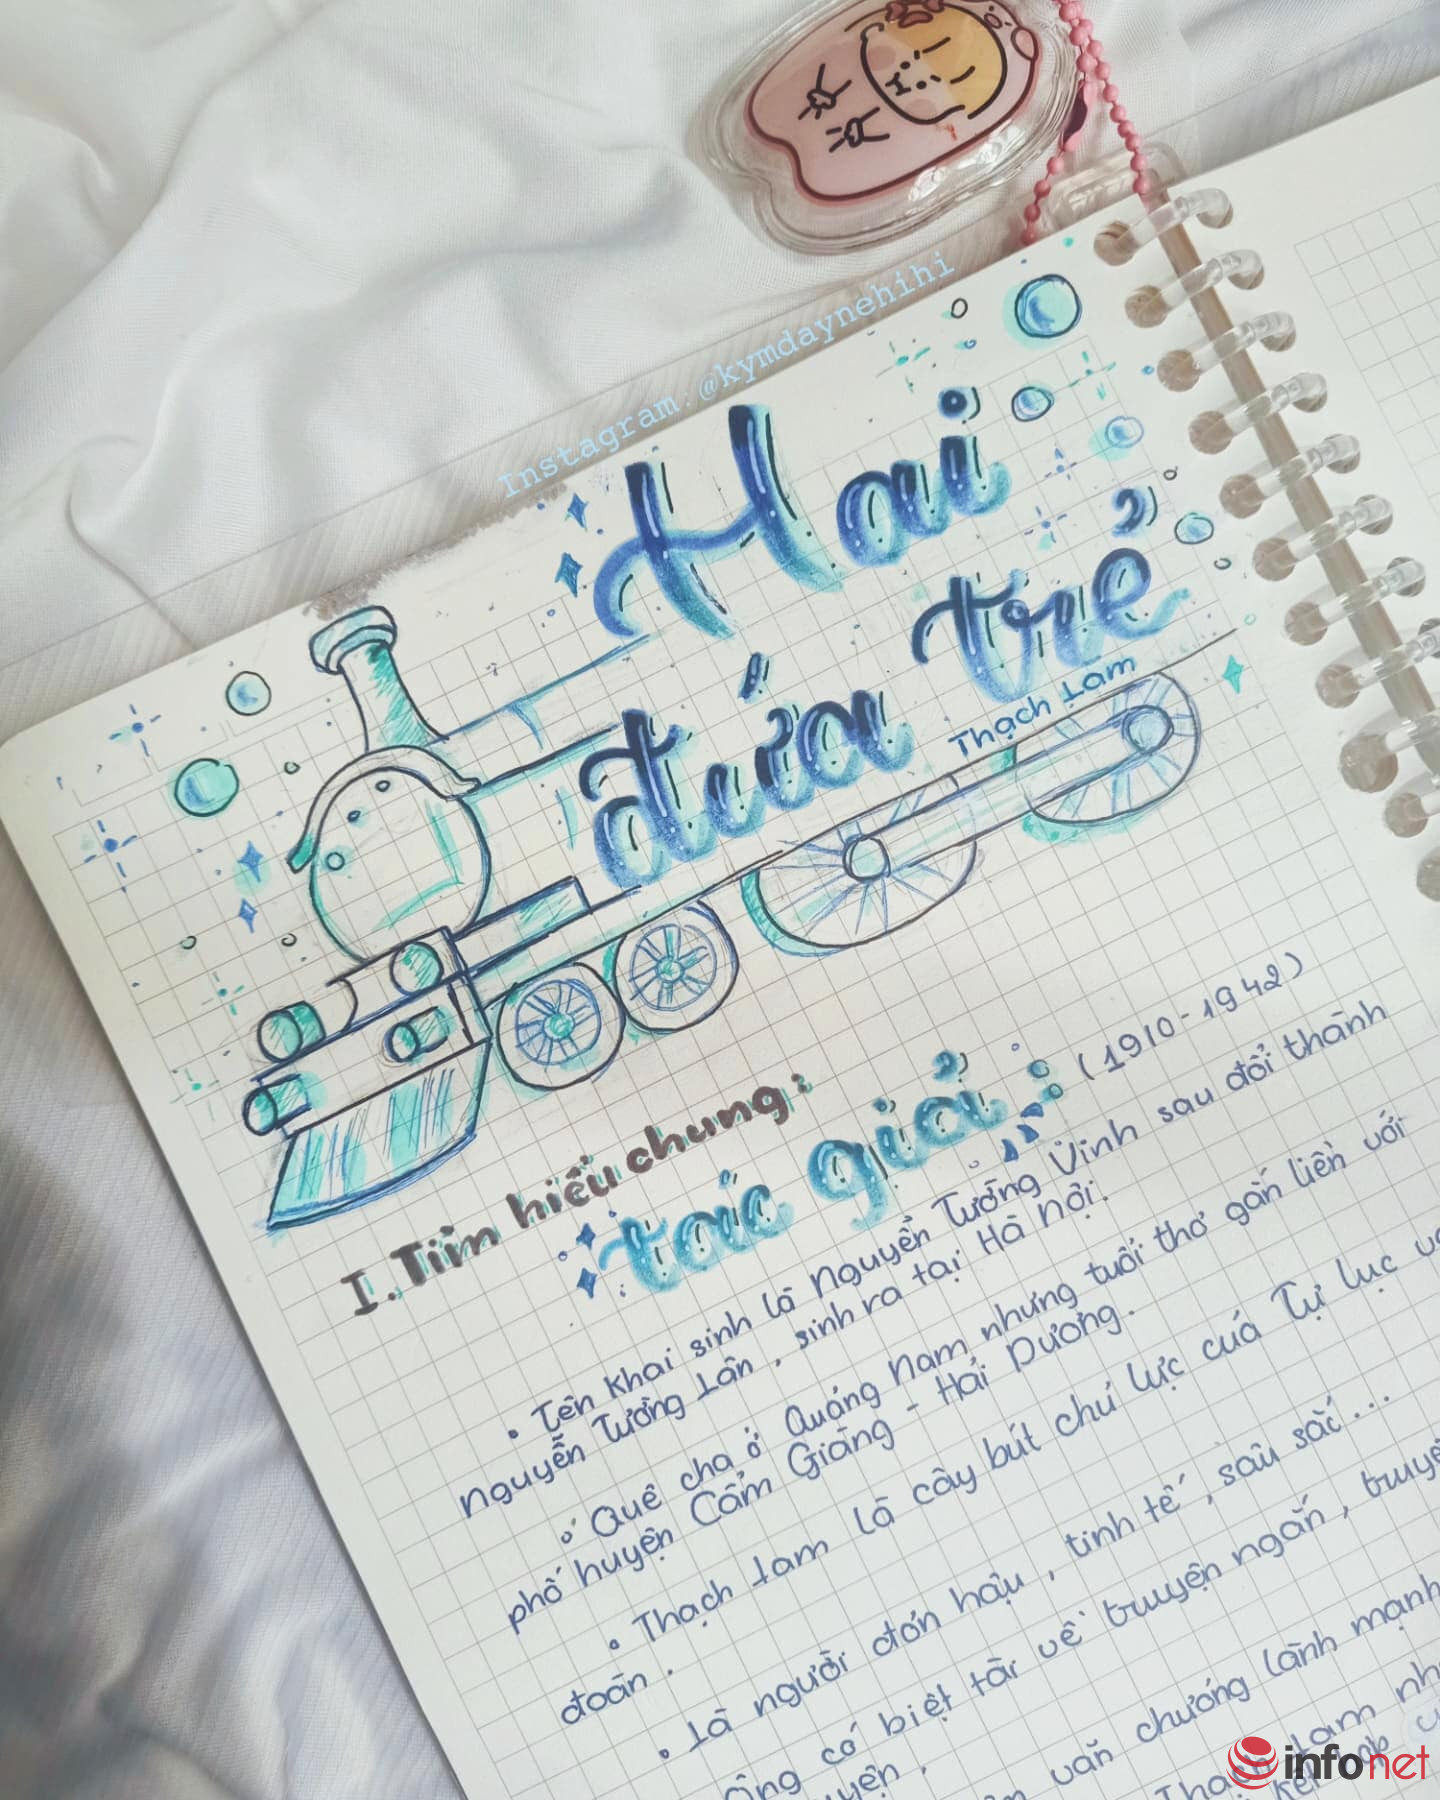 Instagram: @kymdaynehihi
Hai
đứa trẻ
Thạch Lam
I. Tìm hiểu chung:
tác giả: (1910-1942)
• Tên khai sinh là Nguyễn Tường Vinh sau đổi thành
Nguyễn Tường Lân, sinh ra tại Hà nội.
• Quê cha ở Quảng Nam nhưng tuổi thơ gắn liền với
phố huyện Cẩm Giàng - Hải Dương.
• Thạch Lam là cây bút chủ lực của Tự lực
đoàn.
• Là người đôn hậu, tinh tế, sâu sắc...
Ông có biệt tài về truyện ngắn,
văn chương lành mạnh
Thạch Lam
infonet